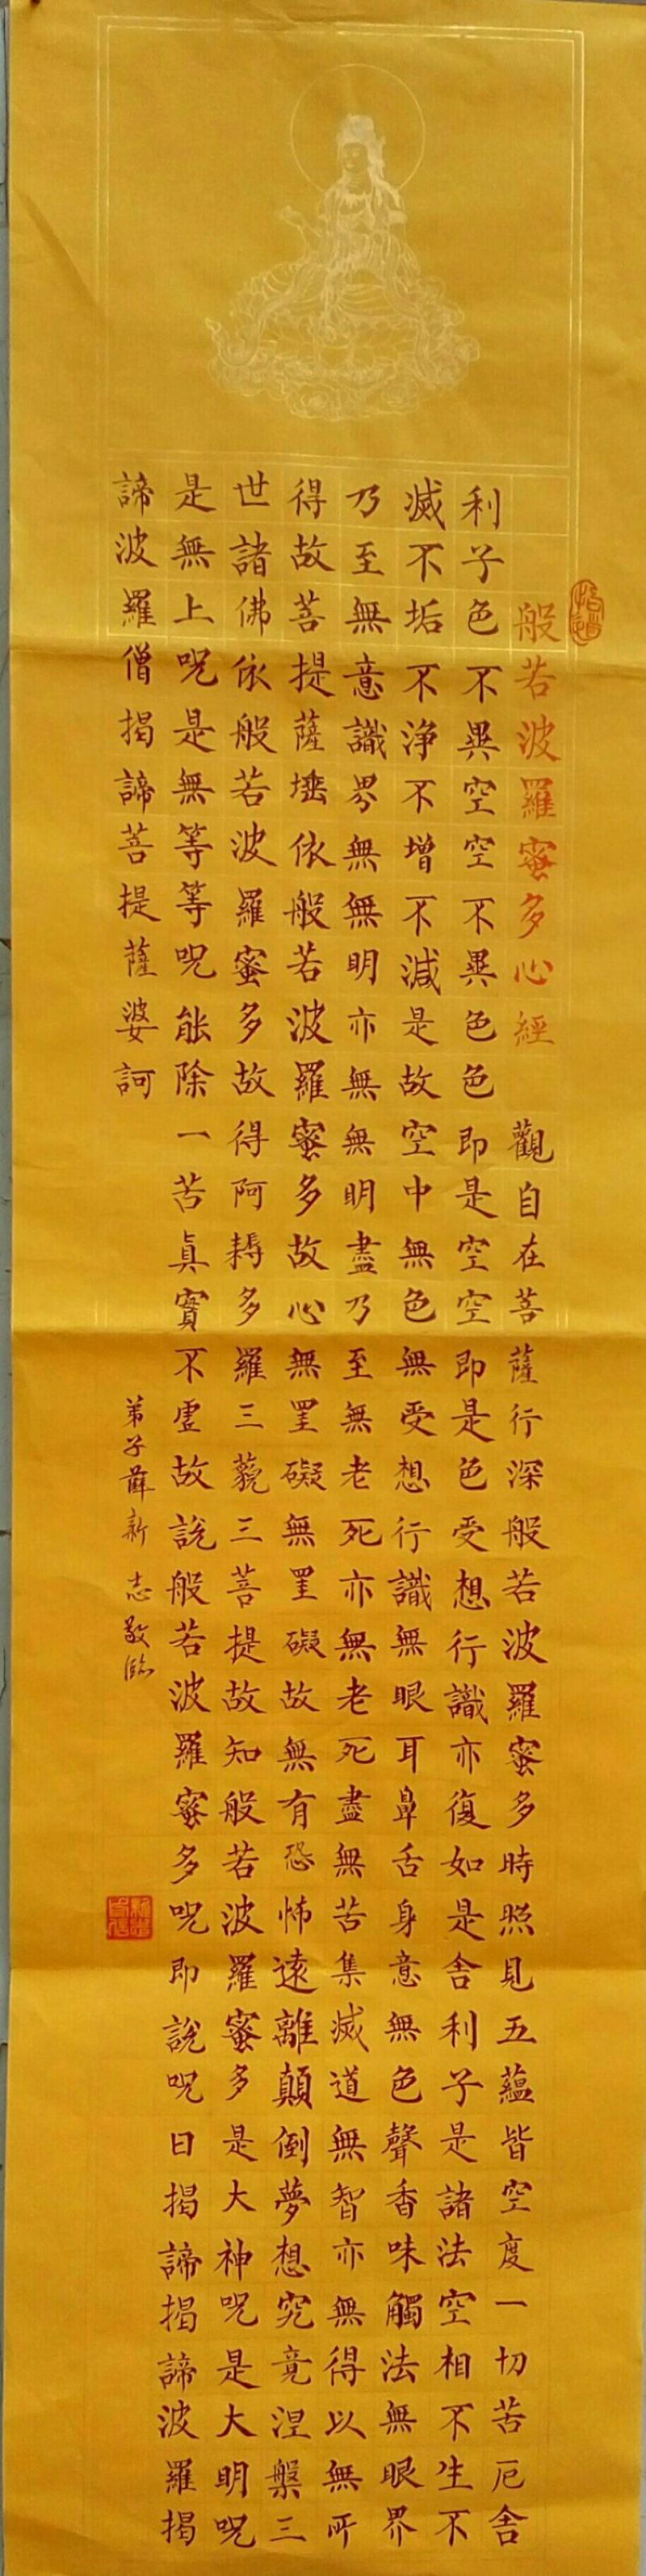 般若波羅蜜多心經 觀自在菩薩行深般若波羅蜜多時照見五蘊皆空度一切苦厄舍
利子色不異空空不異色色即是空空即是色受想行識亦復如是舍利子是諸法空相不生不
滅不垢不浄不增不減是故空中無色無受想行識無眼耳鼻舌身意無色聲香味觸法無眼界
乃至無意識界無無明亦無無明盡乃至無老死亦無老死盡無苦集滅道無智亦無得以無所
得故菩提薩埵依般若波羅蜜多故心無罣礙無罣礙故無有恐怖遠離顛倒夢想究竟涅槃三
世諸佛依般若波羅蜜多故得阿耨多羅三藐三菩提故知般若波羅蜜多是大神呪是大明呪
是無上呪是無等等呪能除一苦眞實不虛故說般若波羅蜜多呪即說呪曰揭諦揭諦波羅揭
諦波羅僧揭諦菩提薩婆訶
弟子薛新志敬臨